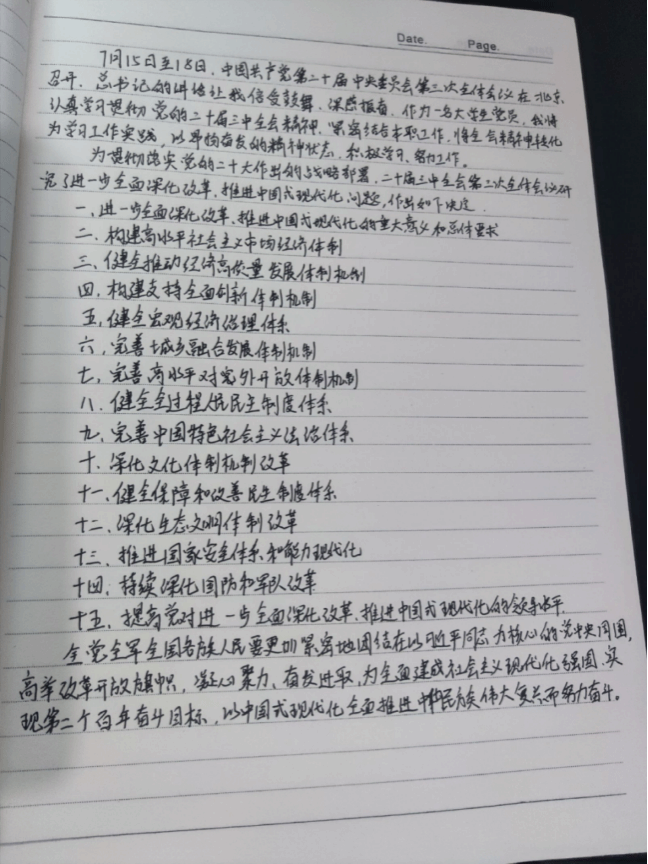 Date. Page.
7月15日至18日，中国共产党第二十届中央委员会第三次全体会议在北京
召开，总书记的讲话让我倍受鼓舞、深感振奋，作为一名大学生党员，我将
认真学习贯彻党的二十届三中全会精神，紧密结合本职工作，将全会精神转化
为学习工作实践，以昂扬奋发的精神状态，积极学习、努力工作。
为贯彻落实党的二十大作出的战略部署，二十届三中全会第三次全体会议研
究了进一步全面深化改革、推进中国式现代化问题，作出如下决定
一、进一步全面深化改革、推进中国式现代化的重大意义和总体要求
二、构建高水平社会主义市场经济体制
三、健全推动经济高质量发展体制机制
四、构建支持全面创新体制机制
五、健全宏观经济治理体系
六、完善城乡融合发展体制机制
七、完善高水平对外开放体制机制
八、健全全过程人民民主制度体系
九、完善中国特色社会主义法治体系
十、深化文化体制机制改革
十一、健全保障和改善民生制度体系
十二、深化生态文明体制改革
十三、推进国家安全体系和能力现代化
十四、持续深化国防和军队改革
十五、提高党对进一步全面深化改革、推进中国式现代化的领导水平
全党全军全国各族人民要更加紧密地团结在以习近平同志为核心的党中央周围，
高举改革开放旗帜，凝心聚力、奋发进取，为全面建成社会主义现代化强国、实
现第二个百年奋斗目标，以中国式现代化全面推进中华民族伟大复兴而努力奋斗。